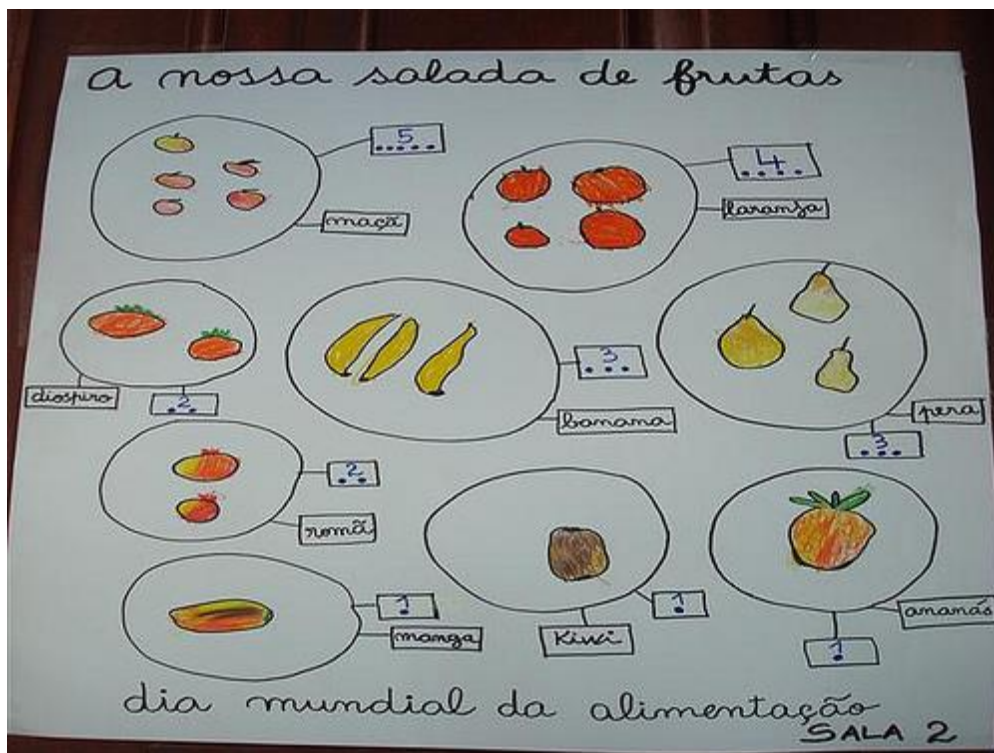 a nossa salada de frutas
5
maçã
4
laranja
diospiro
2
3
banana
pera
3
2
romã
1
manga
Kiwi
1
ananás
1
dia mundial da alimentação
SALA 2